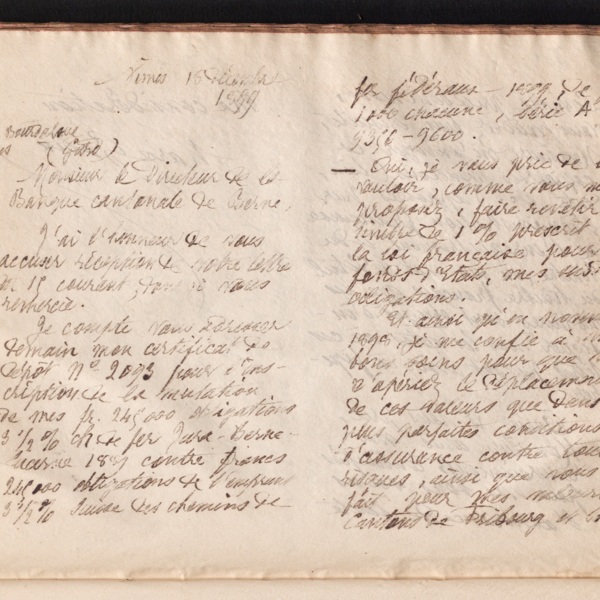 Nimes 18 Décembre
1899.
(Gard)
Monsieur le Directeur de la
Banque cantonale de Berne,
J'ai l'honneur de vous
accuser réception de votre lettre
du 15 courant, dont je vous
remercie.
Je compte vous adresser
demain mon certificat de
dépôt No 2093 pour l'ins-
cription de la mutation
de mes fr. 245,000 obligations
3 1/2 % ch de fer Jura-Berne-
Lucerne 1889 contre francs
245,000 obligations de l'emprunt
3 1/2 % Suisse des chemins de
fer fédéraux - 1899, de
1000 chacune, Série A
9600.
— Oui, je vous prie de
vouloir, comme vous me
proposez, faire revêtir
timbre de 1 % prescrit
la loi française pour
fonds d'Etat, mes
obligations.
1899, je me confie à
bons soins pour que
s'opérer le déplacement
de ces valeurs que dans
plus parfaites conditions
d'assurance contre tous
risques, ainsi que vous
fait pour mes
Cantons de Fribourg et